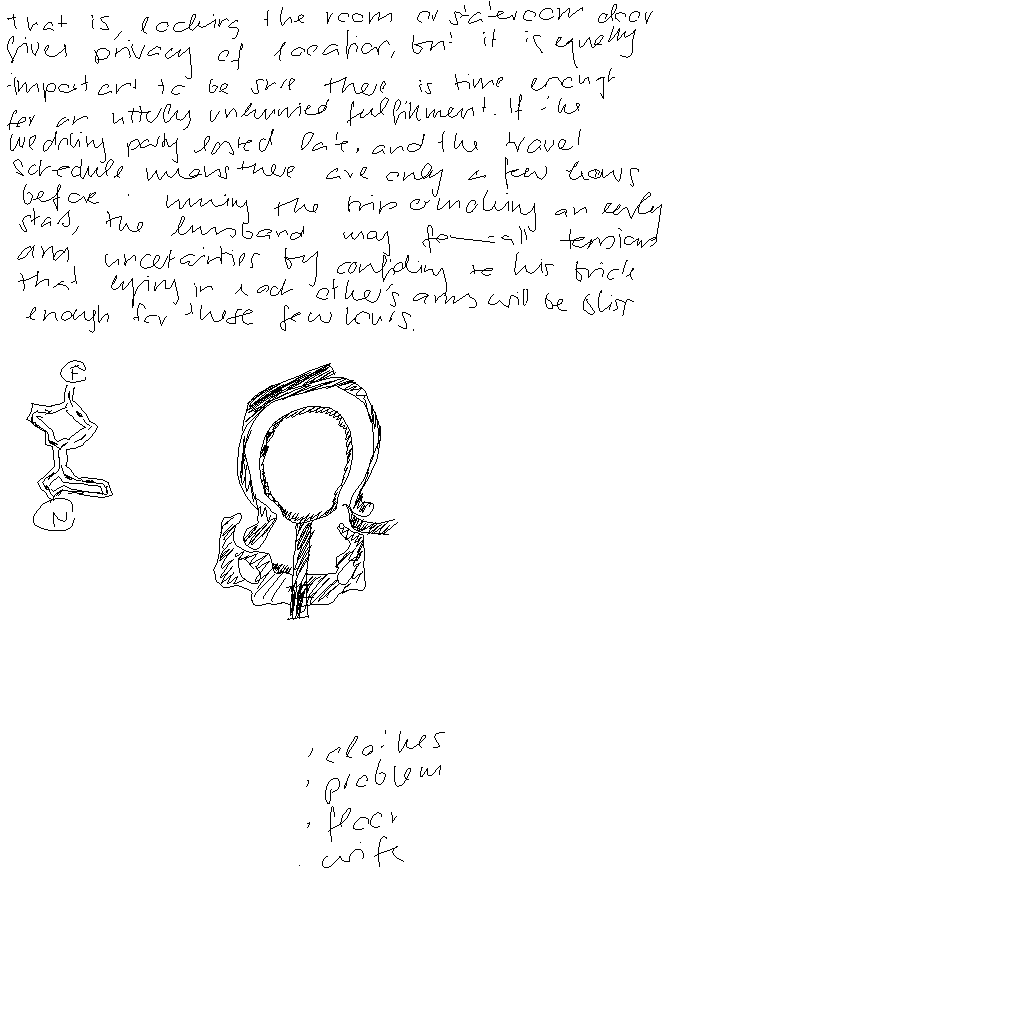 that is, locking the room or stateroom door
gives privacy of location, but it is equally
important to be sure there is time enough
for an utterly unhurried fulfillment. If the
wedding party lasted late, and the travel
schedule means there are only a few hours
before the trip or making an early
start, the husband may all tensions
and uncertainties by confiding to his bride
that lying in each other's arms will be bliss
enough for these few hours.
F
N
clothes
problem
floor
wife